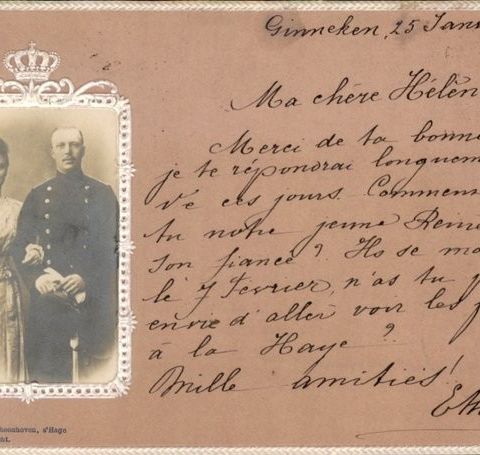 Ginneken, 25 Jan
Ma chère Hélèn
Merci de ta bonne
je te répondrai longuem
de ces jours. Comment
tu notre jeune Reine
son fiancé? Ils se ma
le 7 Fevrier, n'as tu p
envie d'aller voir les f
à la Haye?
Mille amitiés!
choonhoven, s'Hage
cht.